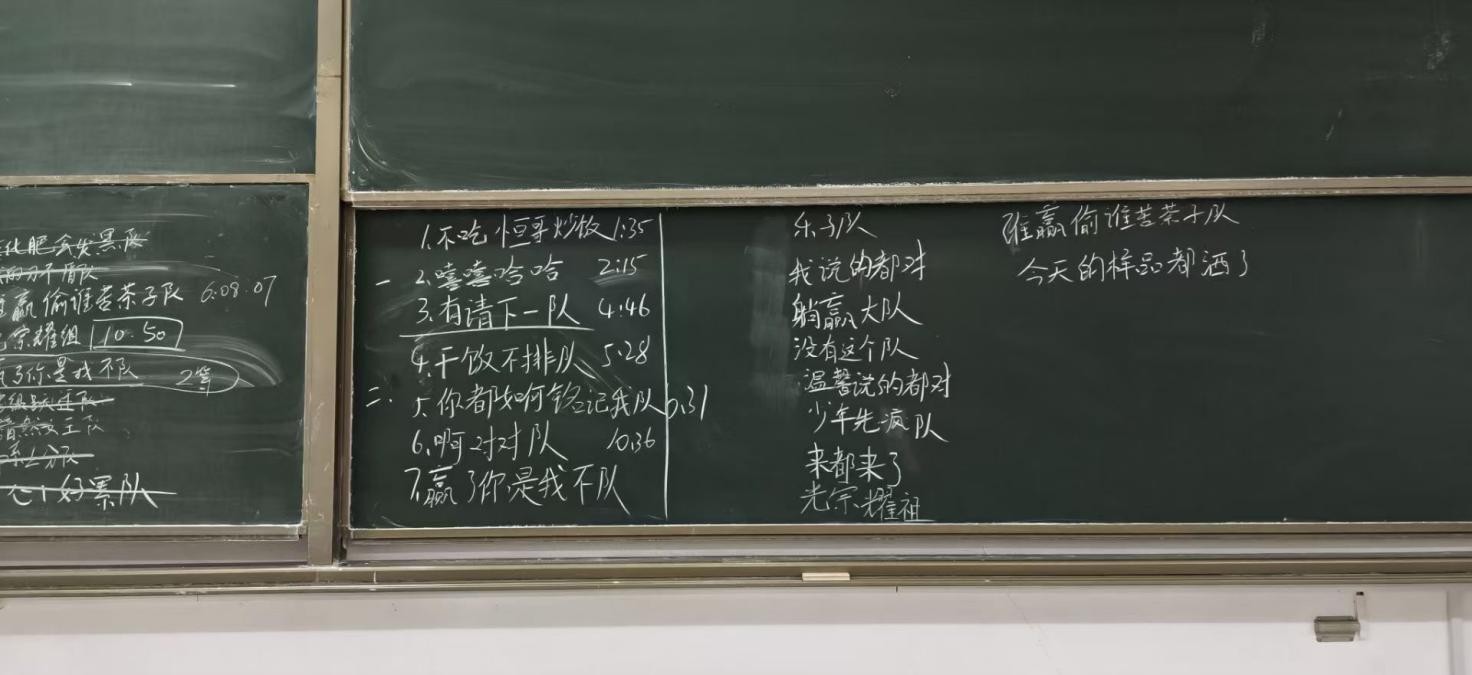 化肥会发黑队
赢偷谁苦茶子队 6.08.07
宗耀组 10.50
了你是我不队 2等
女王队
好累队
1.不吃恒哥炒饭 1:35
一 2.嘻嘻哈哈 2:15
3.有请下一队 4:46
4.干饭不排队 5:28
二. 5.你都如何铭记我队 6:31
6.啊对对队 10:36
7.赢了你是我不队
乐子队
我说的都对
躺赢大队
没有这个队
温馨说的都对
少年先疯队
来都来了
光宗耀祖
谁赢偷谁苦茶子队
今天的样品都洒了